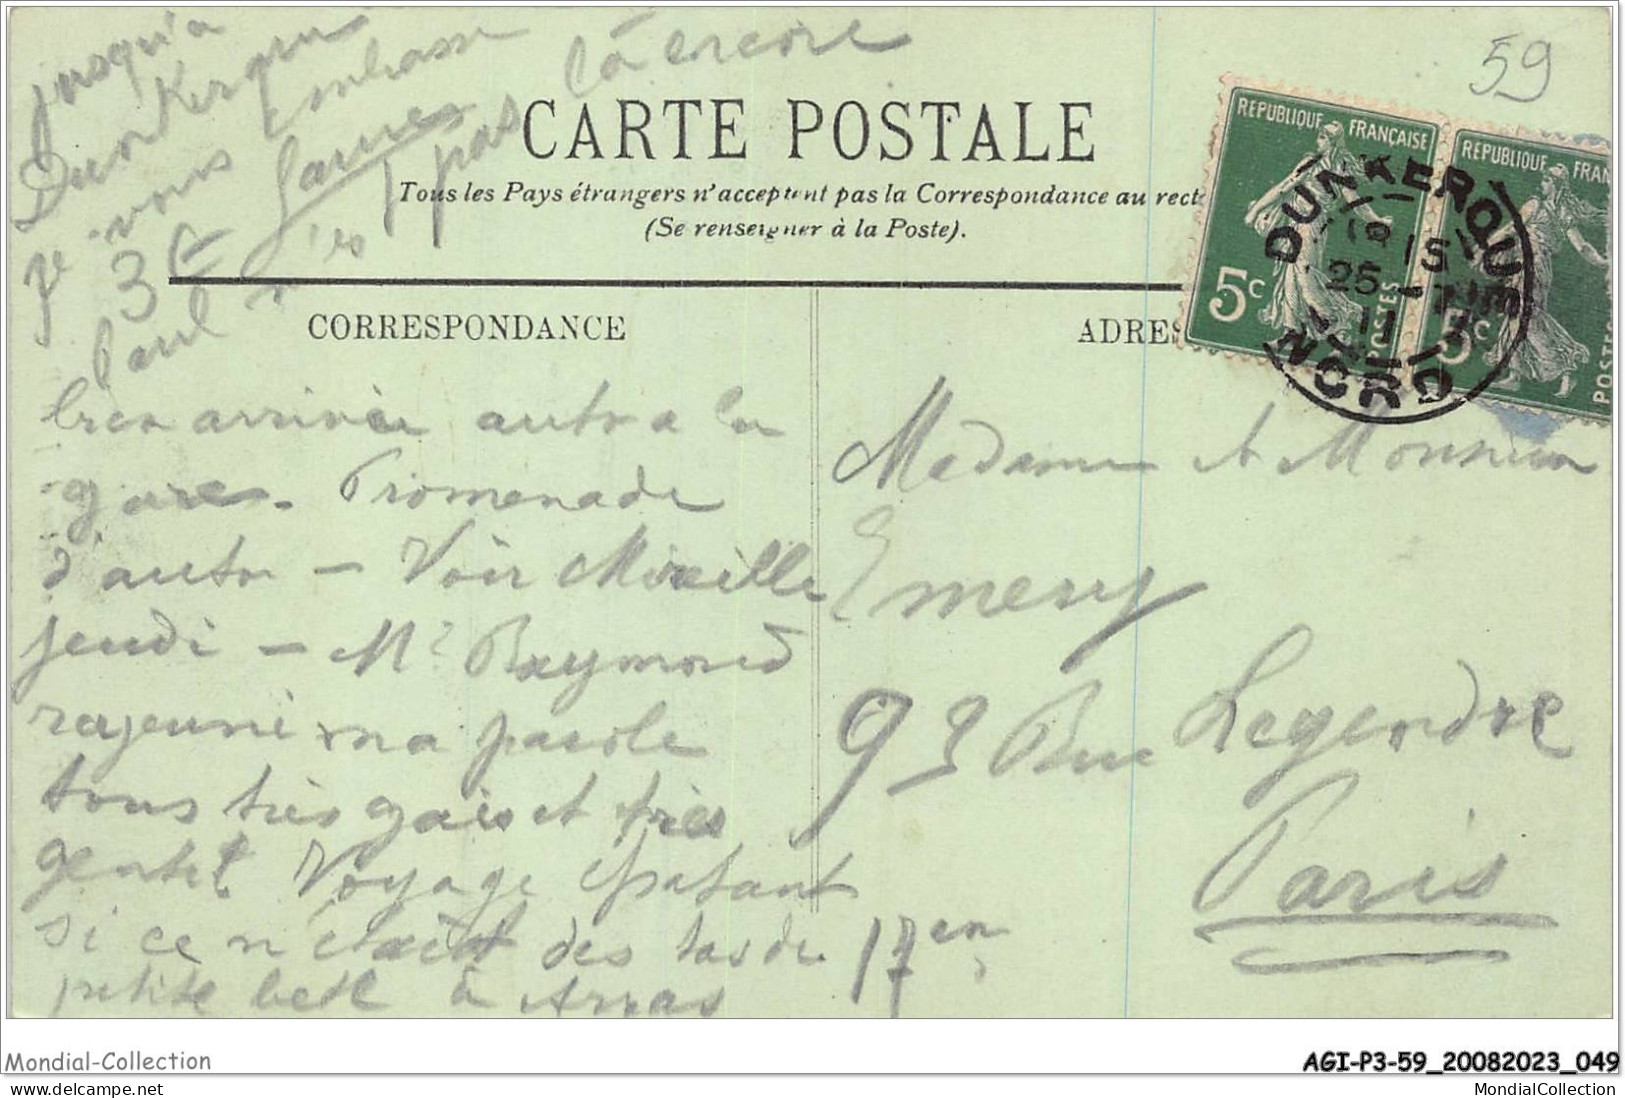 jusqu'à
Dunkerque
je vous embrasse
là encore
pas
59
CARTE POSTALE
Tous les Pays étrangers n'acceptent pas la Correspondance au recto
(Se renseigner à la Poste).
REPUBLIQUE FRANÇAISE
5c
POSTES
REPUBLIQUE FRAN
5c
POSTES
DUNKERQUE
25 - 7
11
NORD
CORRESPONDANCE
ADRES
Paul
bien arrivée auto à la
gare. Promenade
d'auto - Voir Mireille
jeudi - Mr Raymond
rajeuni ma parole
tous très gais et très
gentil Voyage épatant
si ce n'était des tas de
petite bête à Arras
Madame et Monsieur
Emery
93 Rue Legendre
Paris
17en
Mondial-Collection
AGI-P3-59_20082023_049
www.delcampe.net
MondialCollection